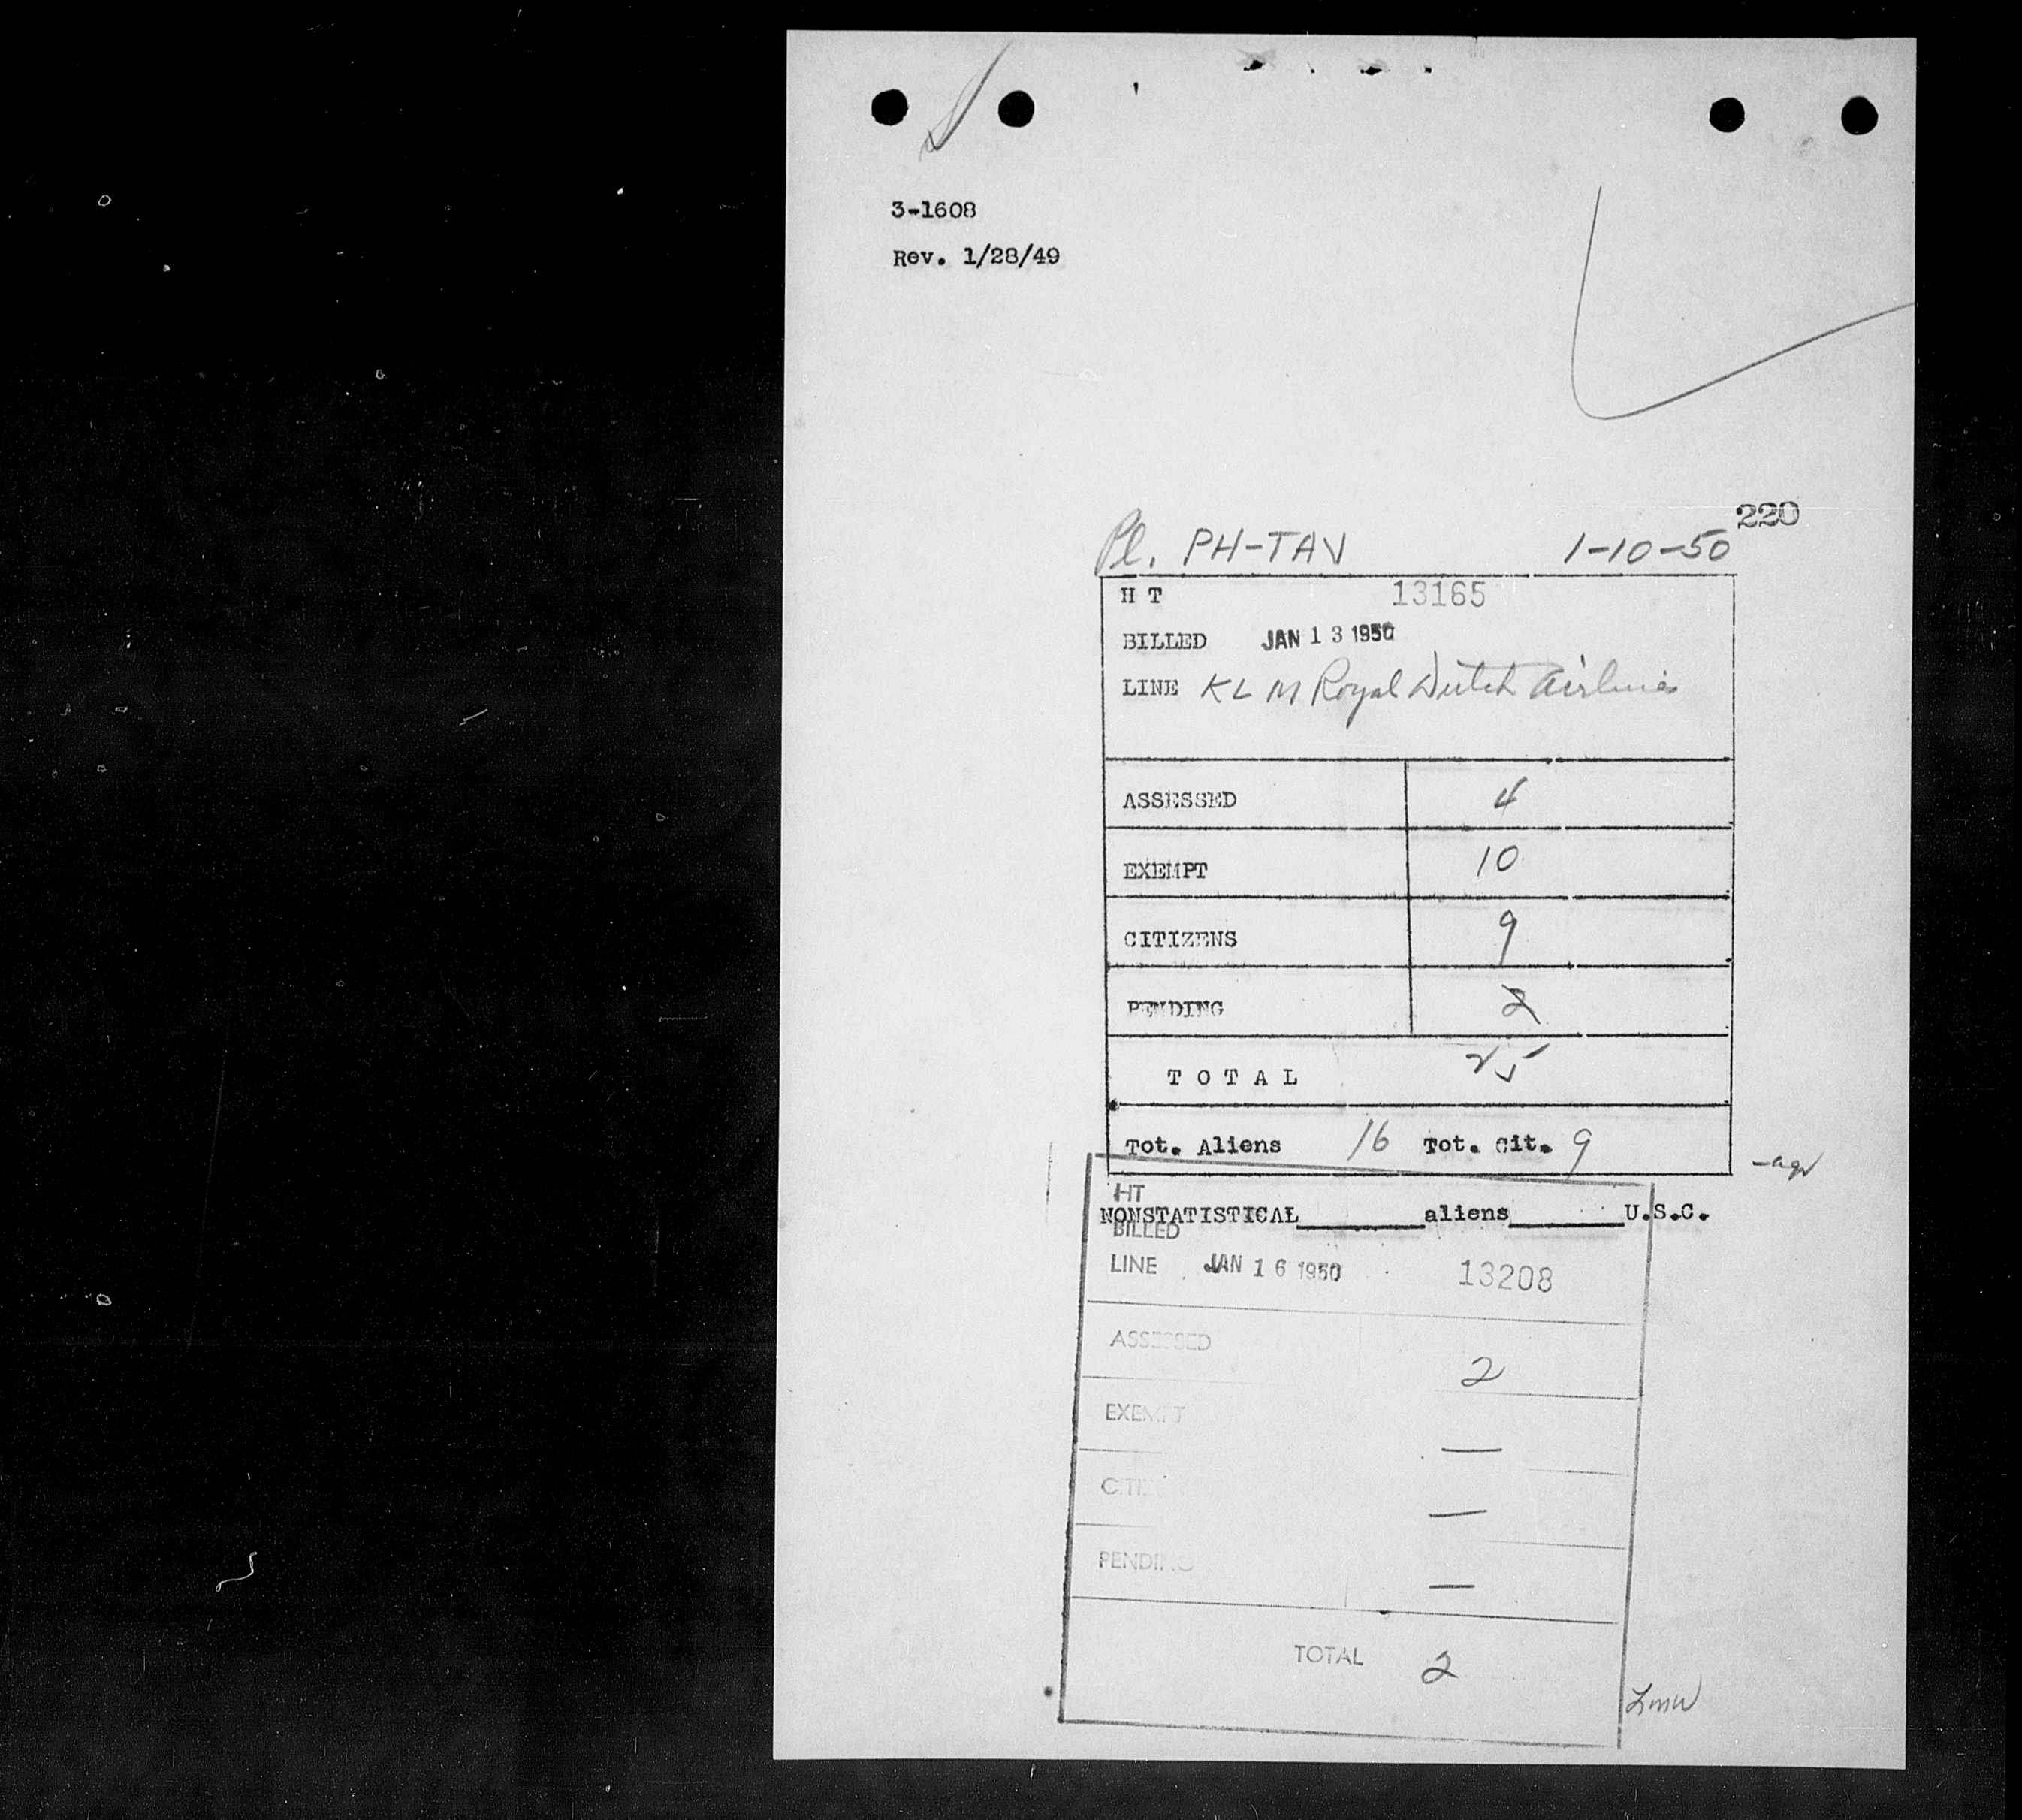 3-1608
Rev. 1/28/49
220
Pl. PH-TAV 1-10-50
H T 13165
BILLED JAN 13 1950
LINE KLM Royal Dutch Airlines
ASSESSED 4
EXEMPT 10
CITIZENS 9
PENDING 2
TOTAL 25
Tot. Aliens 16 Tot. Cit. 9
HT
NONSTATISTICAL aliens U.S.C.
BILLED
LINE JAN 16 1950 13208
ASSESSED 2
EXEMPT —
CITI —
PENDING —
TOTAL 2